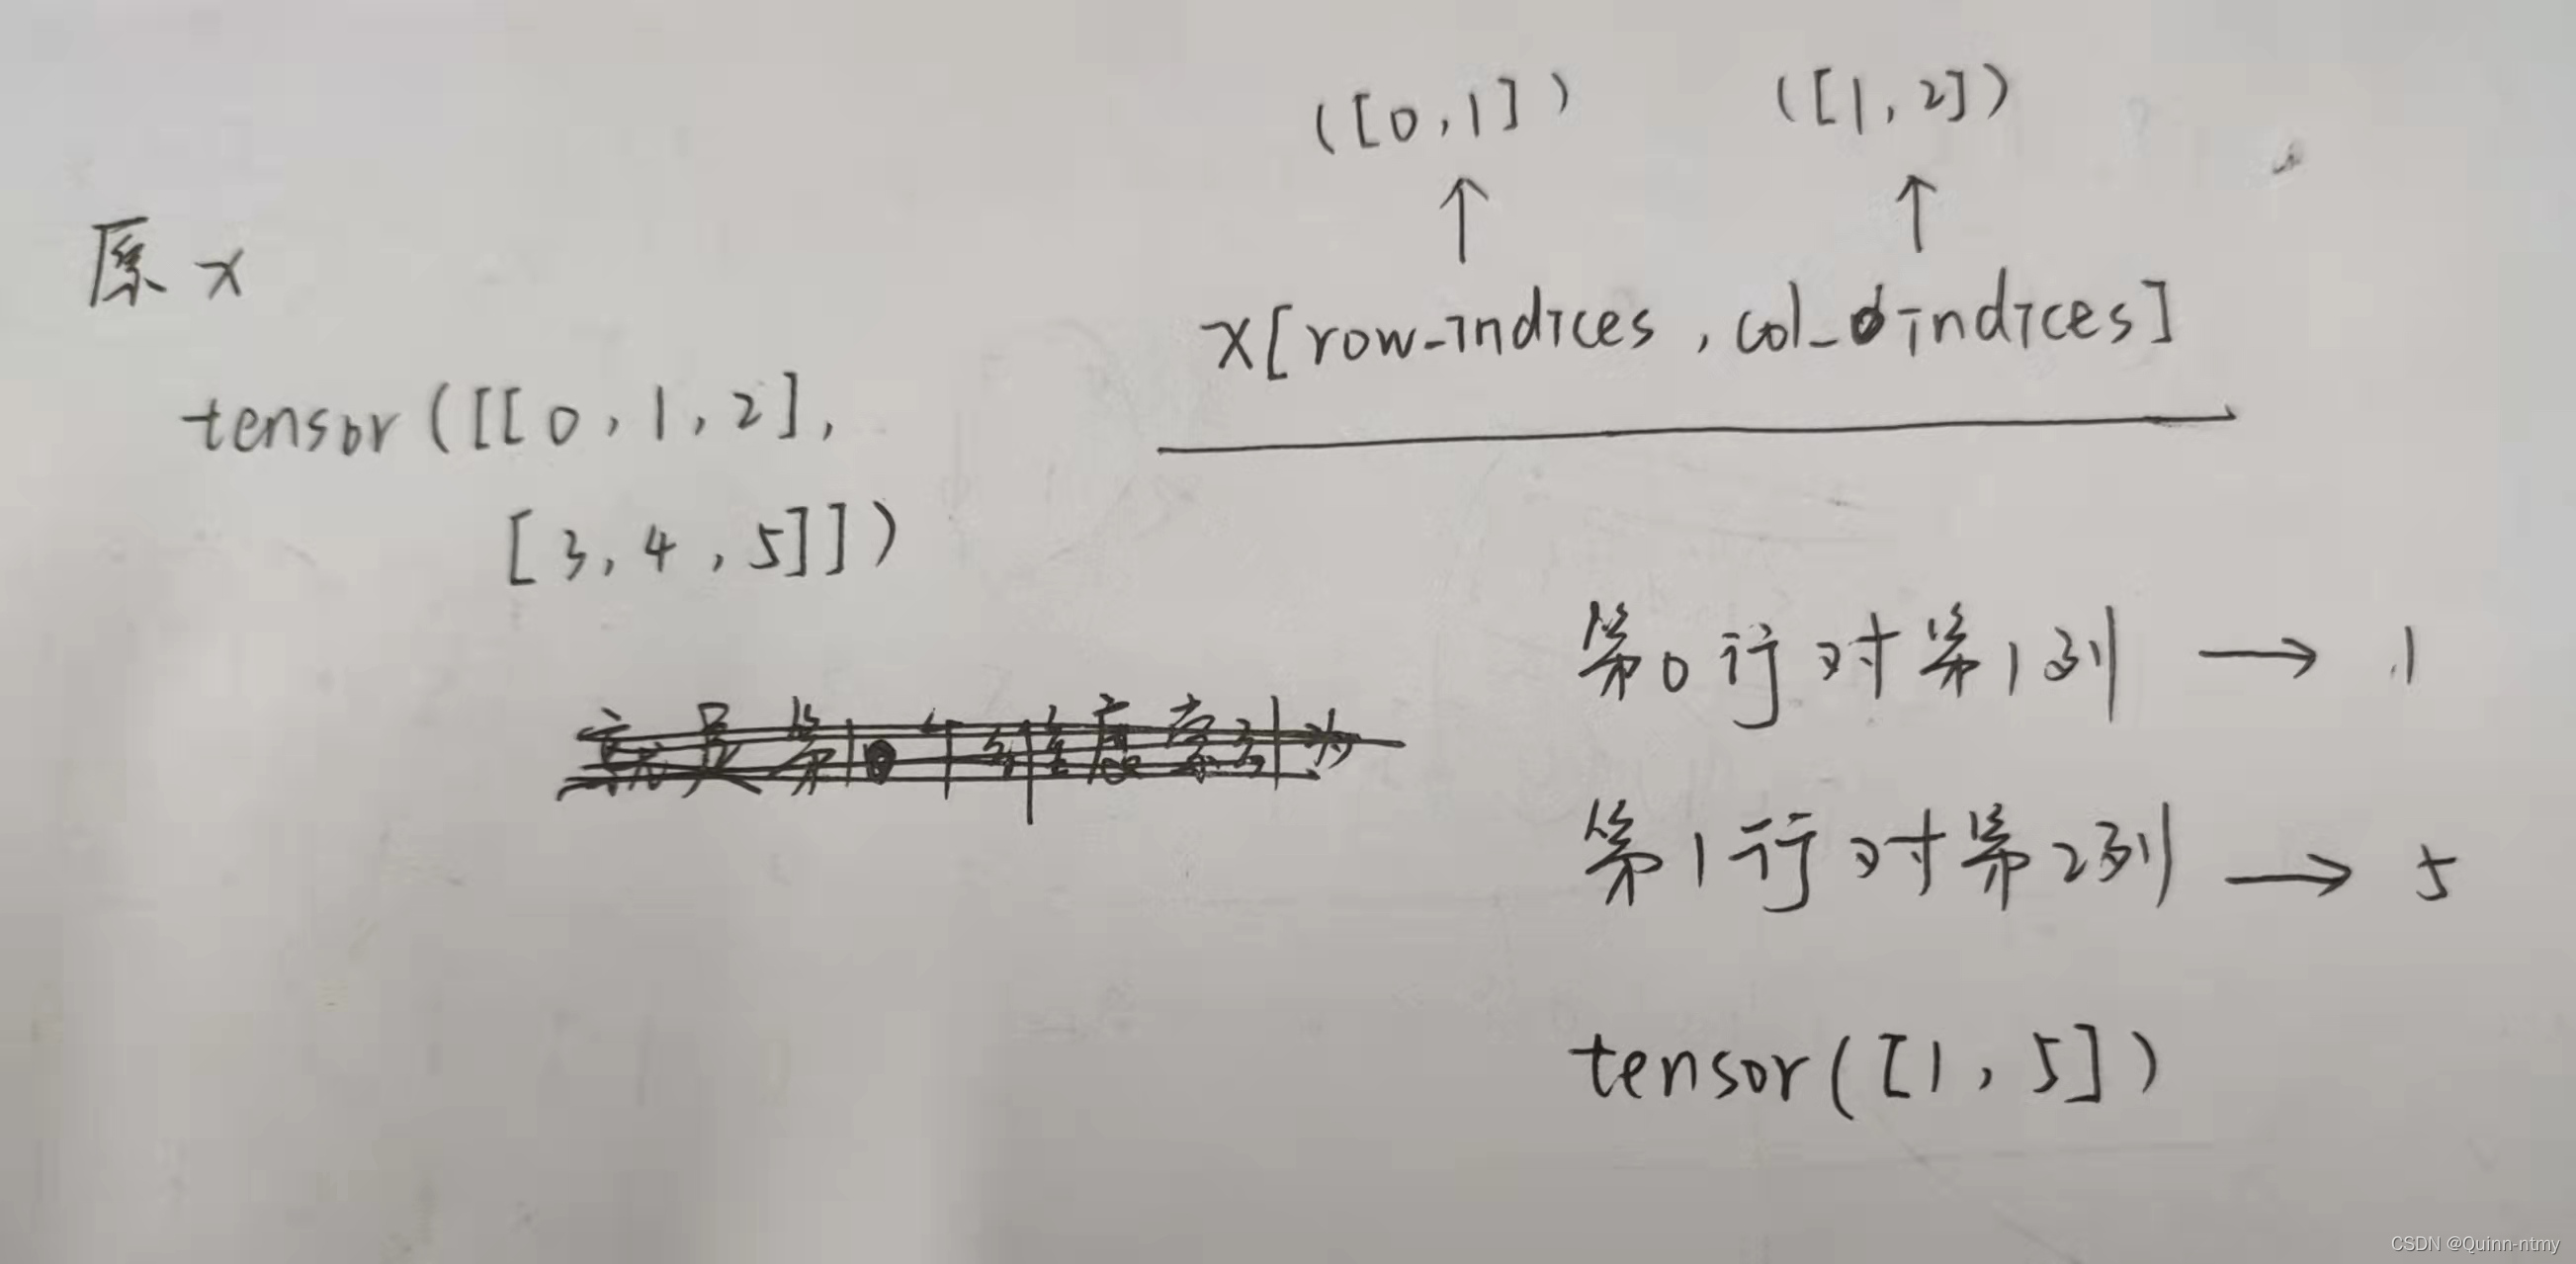 原x
tensor([[0,1,2],
[3,4,5]])
([0,1]) ([1,2])
↑ ↑
x[row_indices,col_indices]
第0行对第1列 → 1
第1行对第2列 → 5
tensor([1,5])
CSDN @Quinn-ntmy